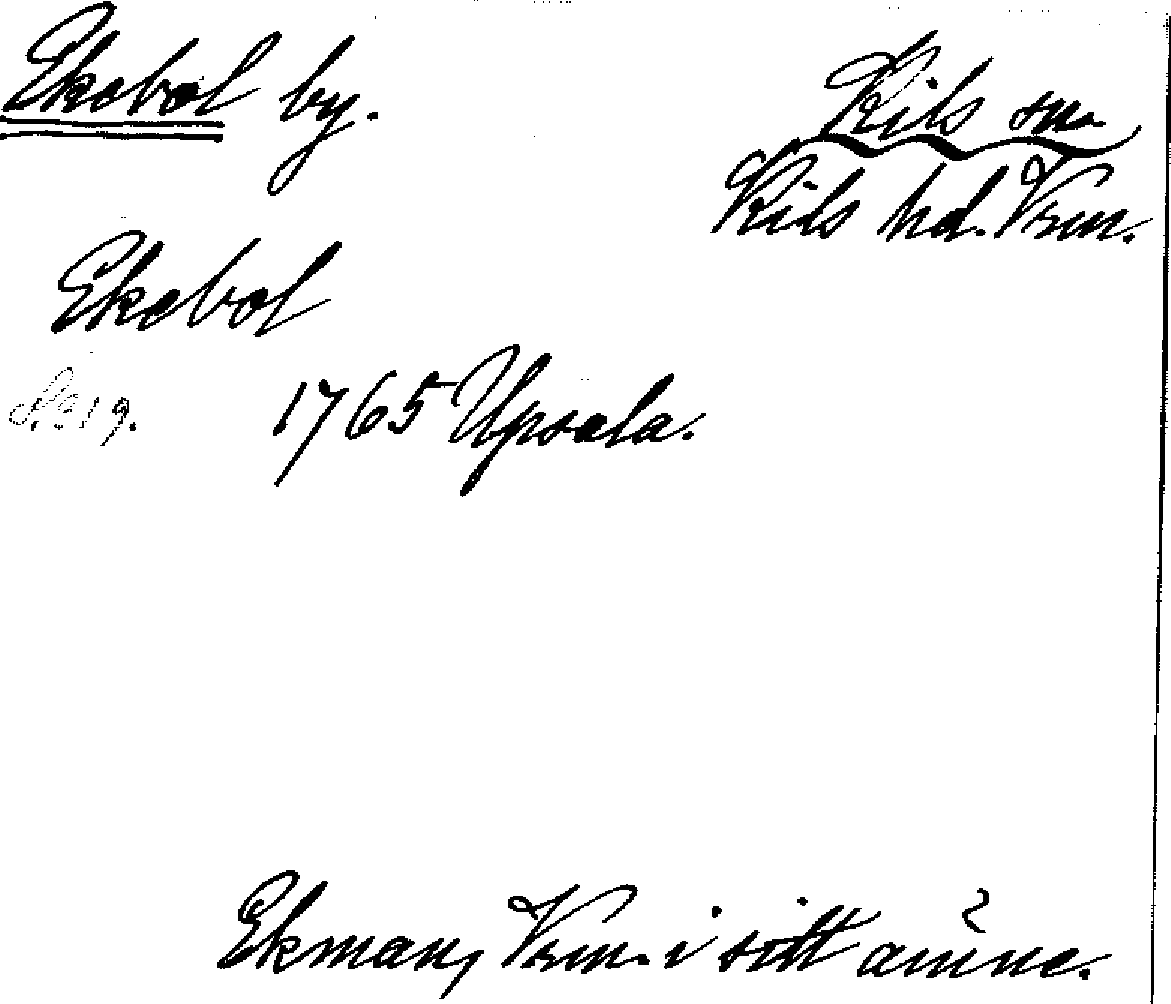 Ekebol by.
Kils sn.
Kils hd. Vrm.
Ekebol
S. 319.
1765 Upsala.
Ekman, Vrm. i sitt ämne.